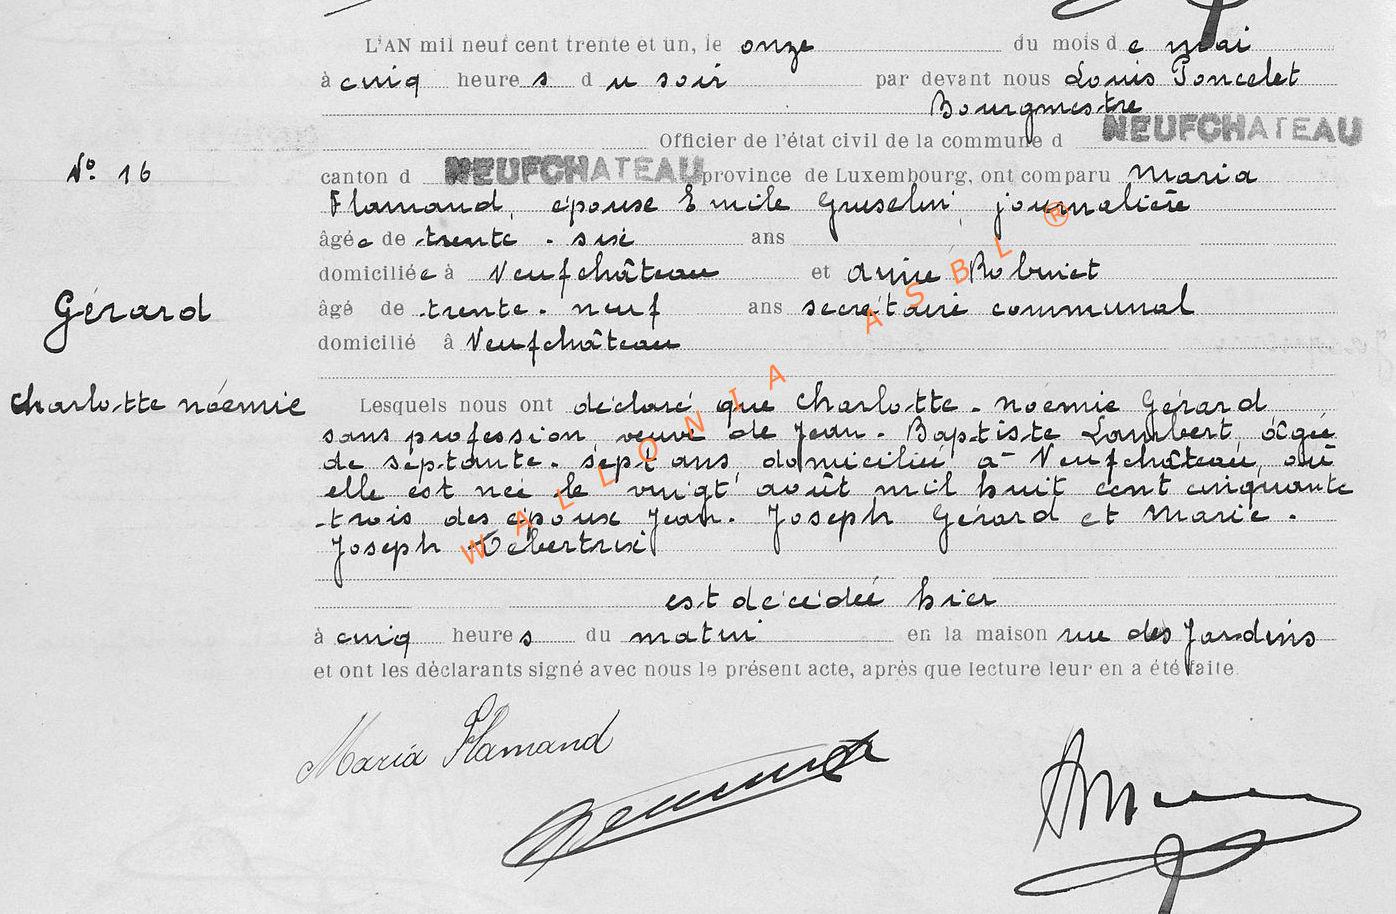 L'AN mil neuf cent trente et un, le onze du mois d e mai
à cinq heure s d u soir par devant nous Louis Poncelet
Bourgmestre
Officier de l'état civil de la commune d NEUFCHATEAU
Nº 16
canton d NEUFCHATEAU province de Luxembourg, ont comparu Maria
Flamand, épouse Emile Guselin, journalière
âgée de trente-six ans
domiciliée à Neufchâteau et
Gérard
âgé de trente-neuf ans secrétaire communal
domicilié à Neufchâteau
Charlotte Noémie
Lesquels nous ont déclaré que Charlotte-Noémie Gérard
sans profession, veuve de Jean-Baptiste Lambert, âgée
de septante-sept ans, domiciliée à Neufchâteau, où
elle est née le vingt août mil huit cent cinquante
-trois des époux Jean-Joseph Gérard et Marie-
Joseph
est décédée hier
à cinq heure s du matin en la maison rue des Jardins
et ont les déclarants signé avec nous le présent acte, après que lecture leur en a été faite.
Maria Flamand
WALLONIA ASBL ®